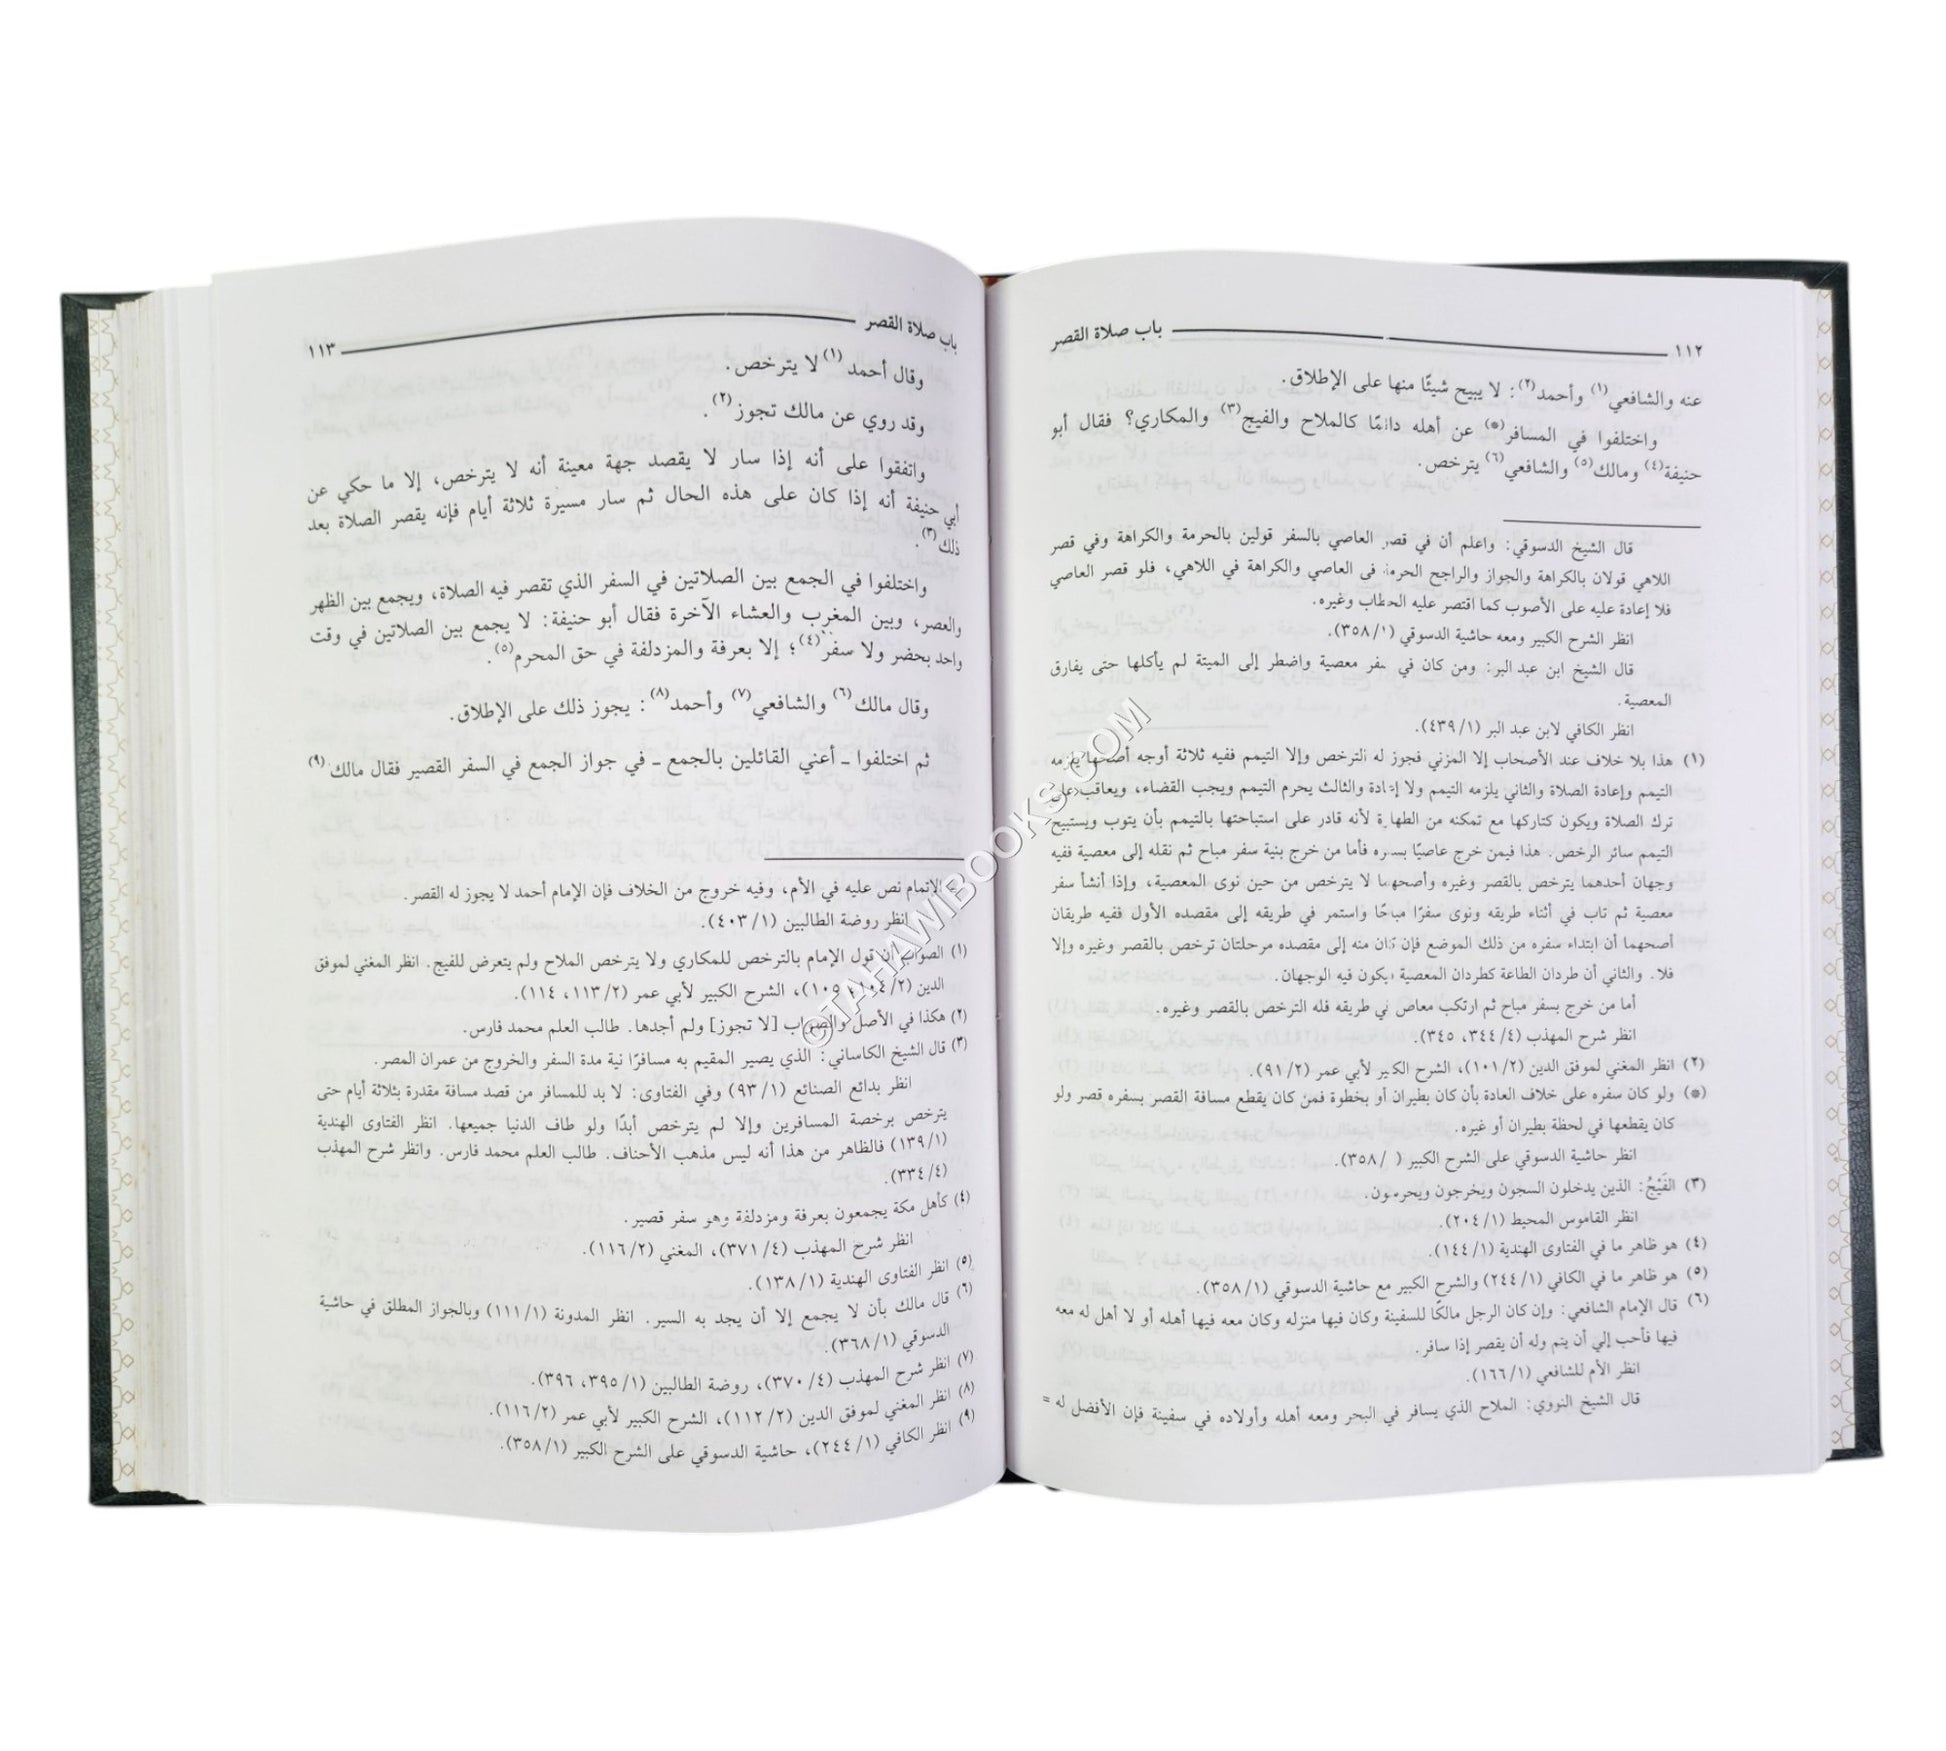 ١١٢ باب صلاة القصر
عنه والشافعي(١) وأحمد(٢): لا يبيح شيئًا منها على الإطلاق.
واختلفوا في المسافر(*) عن أهله دائمًا كالملاح والفيج(٣) والمكاري؟ فقال أبو
حنيفة(٤) ومالك(٥) والشافعي(٦) يترخص.
قال الشيخ الدسوقي: واعلم أن في قصر العاصي بالسفر قولين بالحرمة والكراهة وفي قصر
اللاهي قولان بالكراهة والجواز والراجح الحرمة في العاصي والكراهة في اللاهي، فلو قصر العاصي
فلا إعادة عليه على الأصوب كما اقتصر عليه الحطاب وغيره.
انظر الشرح الكبير ومعه حاشية الدسوقي (١/ ٣٥٨).
قال الشيخ ابن عبد البر: ومن كان في سفر معصية واضطر إلى الميتة لم يأكلها حتى يفارق
المعصية.
انظر الكافي لابن عبد البر (١/ ٤٣٩).
(١) هذا بلا خلاف عند الأصحاب إلا المزني فجوز له الترخص وإلا التيمم ففيه ثلاثة أوجه أصحها يلزمه
التيمم وإعادة الصلاة والثاني يلزمه التيمم ولا إعادة والثالث يحرم التيمم ويجب القضاء، ويعاقب على
ترك الصلاة ويكون كتاركها مع تمكنه من الطهارة لأنه قادر على استباحتها بالتيمم بأن يتوب ويستبيح
التيمم سائر الرخص. هذا فيمن خرج عاصيًا بسفره فأما من خرج بنية سفر مباح ثم نقله إلى معصية ففيه
وجهان أحدهما يترخص بالقصر وغيره وأصحهما لا يترخص من حين نوى المعصية، وإذا أنشأ سفر
معصية ثم تاب في أثناء طريقه ونوى سفرًا مباحًا واستمر في طريقه إلى مقصده الأول ففيه طريقان
أصحهما أن ابتداء سفره من ذلك الموضع فإن كان منه إلى مقصده مرحلتان ترخص بالقصر وغيره وإلا
فلا. والثاني أن طردان الطاعة كطردان المعصية فيكون فيه الوجهان.
أما من خرج بسفر مباح ثم ارتكب معاص في طريقه فله الترخص بالقصر وغيره.
انظر شرح المهذب (٤/ ٣٤٤، ٣٤٥).
(٢) انظر المغني لموفق الدين (٢/ ١٠١)، الشرح الكبير لأبي عمر (٢/ ٩١).
(*) ولو كان سفره على خلاف العادة بأن كان بطيران أو بخطوة فمن كان يقطع مسافة القصر بسفره قصر ولو
كان يقطعها في لحظة بطيران أو غيره.
انظر حاشية الدسوقي على الشرح الكبير ( / ٣٥٨).
(٣) الفَيْجُ: الذين يدخلون السجون ويخرجون ويحرسون.
انظر القاموس المحيط (١/ ٢٠٤).
(٤) هو ظاهر ما في الفتاوى الهندية (١/ ١٤٤).
(٥) هو ظاهر ما في الكافي (١/ ٢٤٤) والشرح الكبير مع حاشية الدسوقي (١/ ٣٥٨).
(٦) قال الإمام الشافعي: وإن كان الرجل مالكًا للسفينة وكان فيها منزله وكان معه فيها أهله أو لا أهل له معه
فيها فأحب إلي أن يتم وله أن يقصر إذا سافر.
انظر الأم للشافعي (١/ ١٦٦).
قال الشيخ النووي: الملاح الذي يسافر في البحر ومعه أهله وأولاده في سفينة فإن الأفضل له =
باب صلاة القصر ١١٣
وقال أحمد(١) لا يترخص.
وقد روي عن مالك تجوز(٢).
واتفقوا على أنه إذا سار لا يقصد جهة معينة أنه لا يترخص، إلا ما حكي عن
أبي حنيفة أنه إذا كان على هذه الحال ثم سار مسيرة ثلاثة أيام فإنه يقصر الصلاة بعد
ذلك(٣).
واختلفوا في الجمع بين الصلاتين في السفر الذي تقصر فيه الصلاة، ويجمع بين الظهر
والعصر، وبين المغرب والعشاء الآخرة فقال أبو حنيفة: لا يجمع بين الصلاتين في وقت
واحد بحضر ولا سفر(٤)؛ إلا بعرفة والمزدلفة في حق المحرم(٥).
وقال مالك(٦) والشافعي(٧) وأحمد(٨): يجوز ذلك على الإطلاق.
ثم اختلفوا ـ أعني القائلين بالجمع ـ في جواز الجمع في السفر القصير فقال مالك(٩)
الإتمام نص عليه في الأم، وفيه خروج من الخلاف فإن الإمام أحمد لا يجوز له القصر.
انظر روضة الطالبين (١/ ٤٠٣).
(١) الصواب أن قول الإمام بالترخص للمكاري ولا يترخص الملاح ولم يتعرض للفيج. انظر المغني لموفق
الدين (٢/ ١٠٤، ١٠٥)، الشرح الكبير لأبي عمر (٢/ ١١٣، ١١٤).
(٢) هكذا في الأصل والصواب [لا تجوز] ولم أجدها. طالب العلم محمد فارس.
(٣) قال الشيخ الكاساني: الذي يصير المقيم به مسافرًا نية مدة السفر والخروج من عمران المصر.
انظر بدائع الصنائع (١/ ٩٣) وفي الفتاوى: لا بد للمسافر من قصد مسافة مقدرة بثلاثة أيام حتى
يترخص برخصة المسافرين وإلا لم يترخص أبدًا ولو طاف الدنيا جميعها. انظر الفتاوى الهندية
(١/ ١٣٩) فالظاهر من هذا أنه ليس مذهب الأحناف. طالب العلم محمد فارس. وانظر شرح المهذب
(٤/ ٣٣٤).
(٤) كأهل مكة يجمعون بعرفة ومزدلفة وهو سفر قصير.
انظر شرح المهذب (٤/ ٣٧١)، المغني (٢/ ١١٦).
(٥) انظر الفتاوى الهندية (١/ ١٣٨).
(٦) قال مالك بأن لا يجمع إلا أن يجد به السير. انظر المدونة (١/ ١١١) وبالجواز المطلق في حاشية
الدسوقي (١/ ٣٦٨).
(٧) انظر شرح المهذب (٤/ ٣٧٠)، روضة الطالبين (١/ ٣٩٥، ٣٩٦).
(٨) انظر المغني لموفق الدين (٢/ ١١٢)، الشرح الكبير لأبي عمر (٢/ ١١٦).
(٩) انظر الكافي (١/ ٢٤٤)، حاشية الدسوقي على الشرح الكبير (١/ ٣٥٨).
©TAHAWIBOOKS.COM